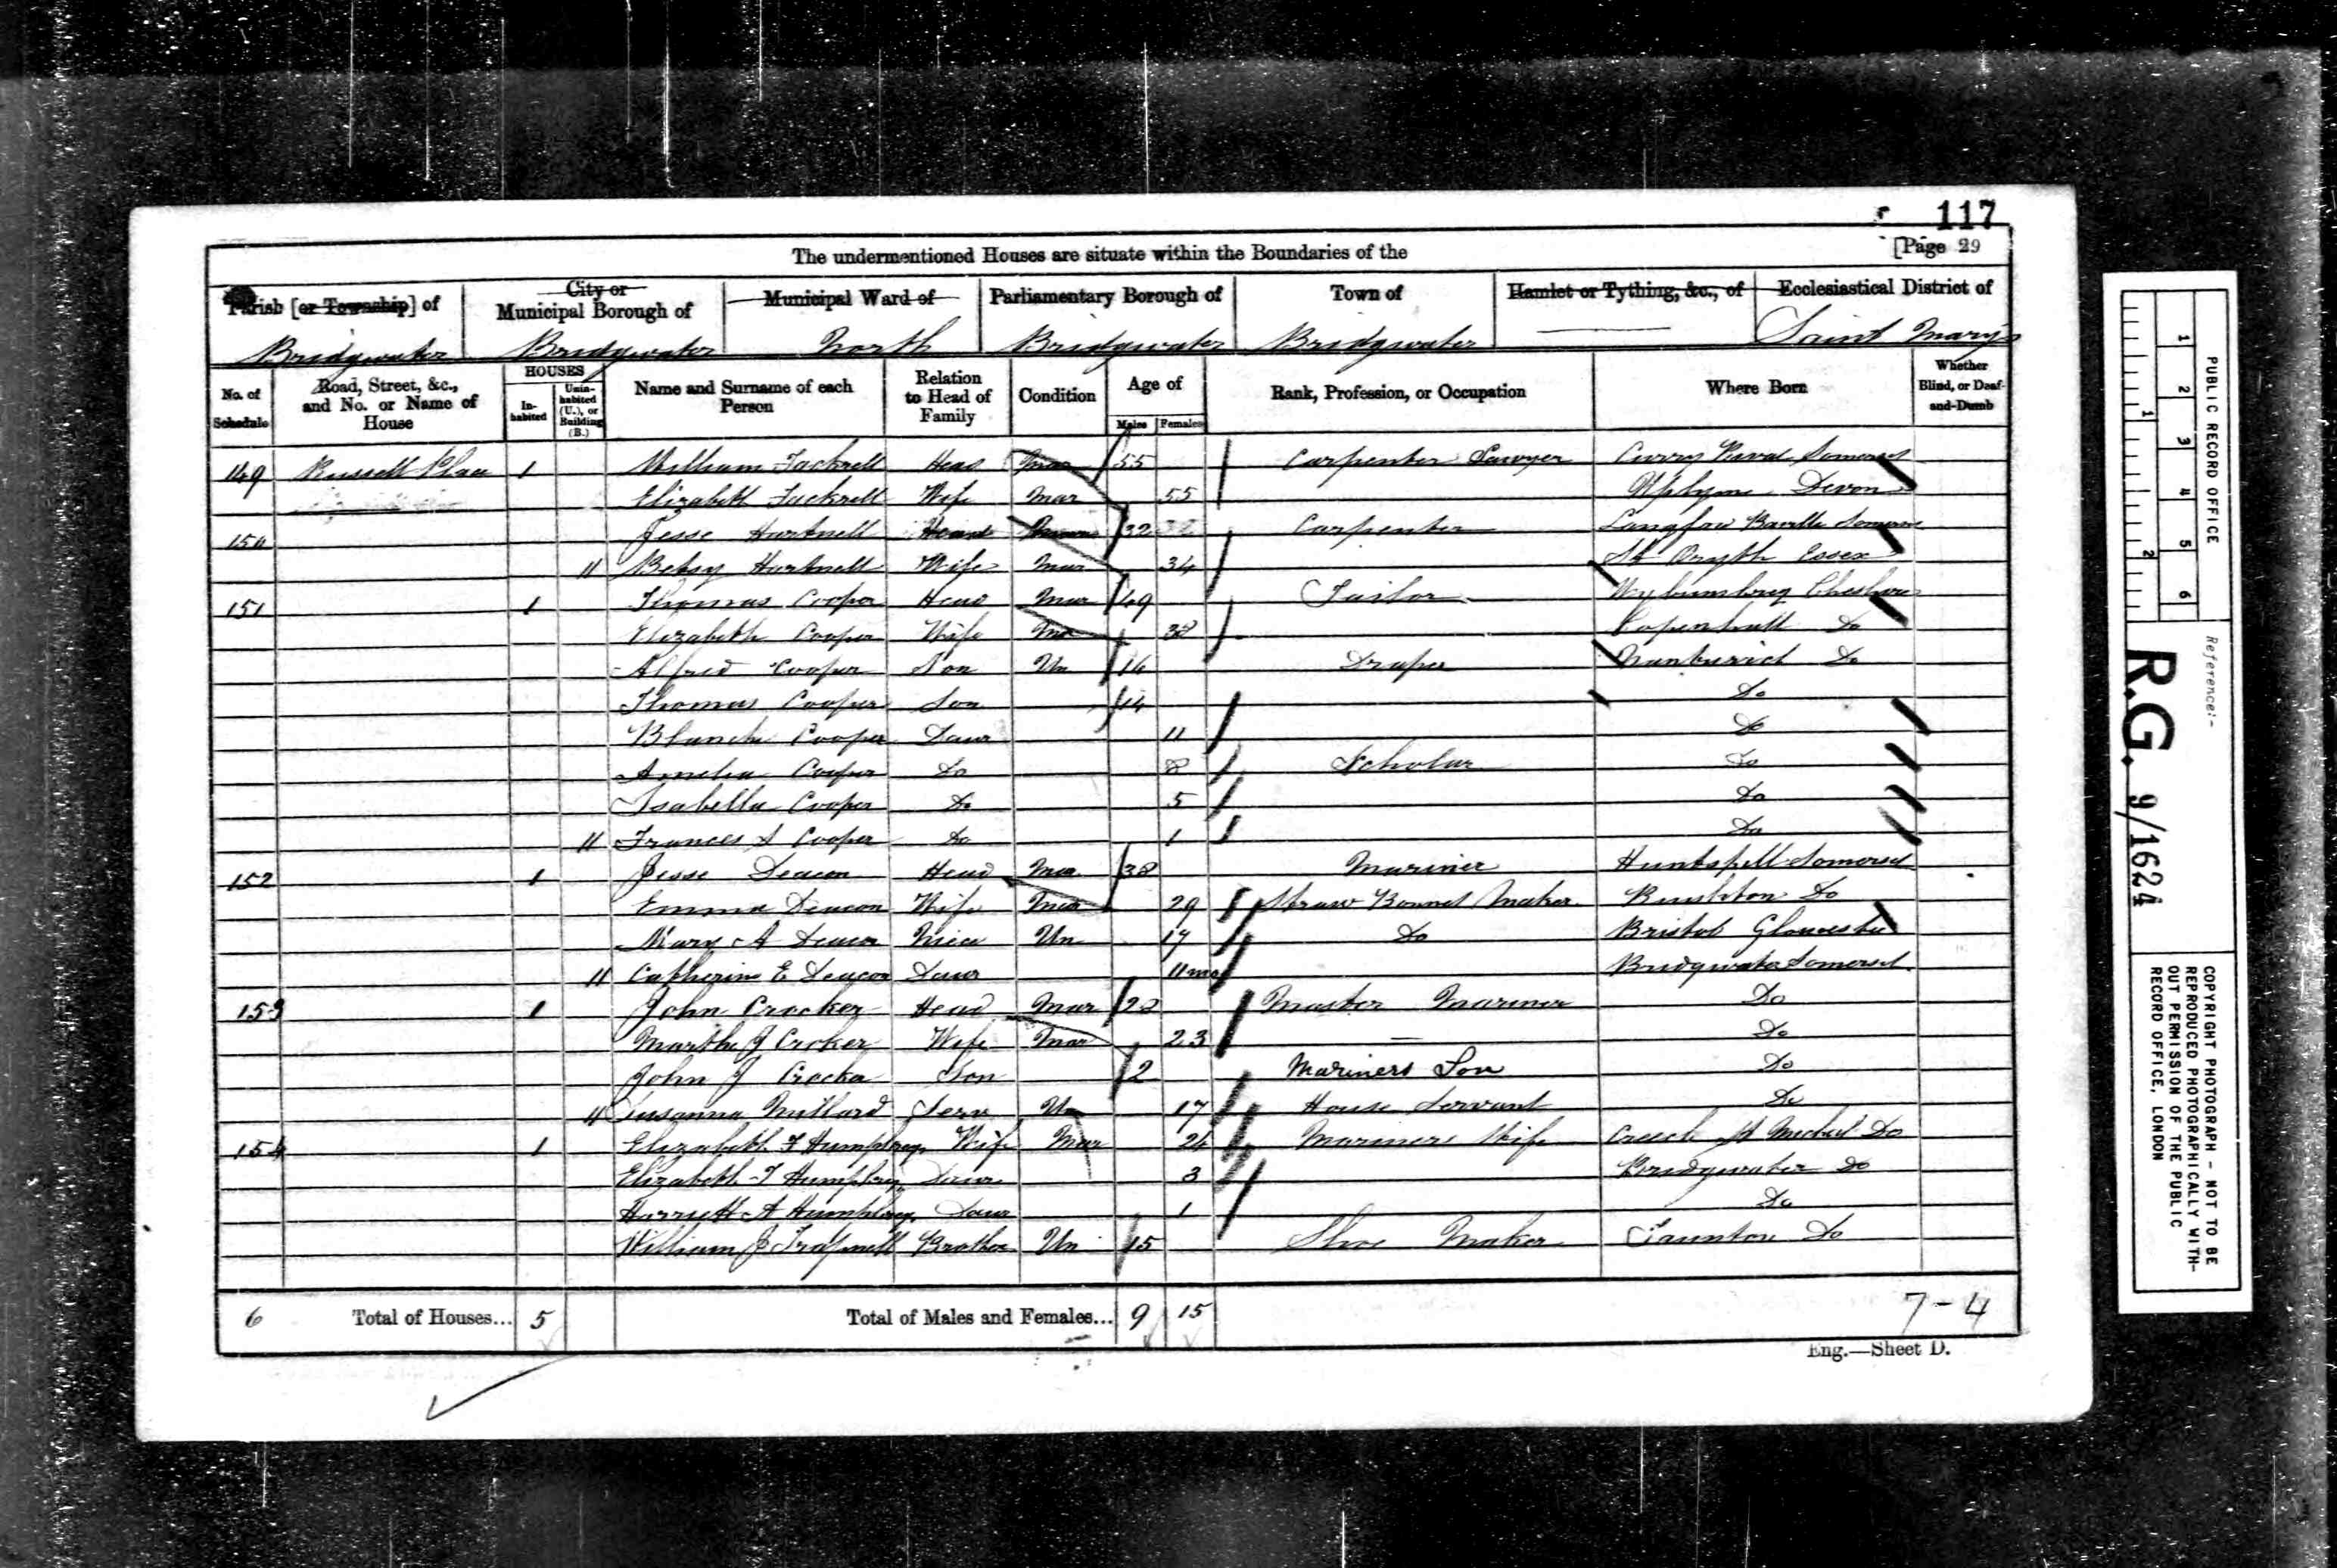 117
[Page 29
The undermentioned Houses are situate within the Boundaries of the
Parish [or Township] of
City or Municipal Borough of
Municipal Ward of
Parliamentary Borough of
Town of
Hamlet or Tything, &c., of
Ecclesiastical District of
Bridgwater Bridgwater North Bridgwater Bridgwater Saint Marys
No. of Schedule
Road, Street, &c., and No. or Name of House
HOUSES
In-habited
Unin-habited (U.), or Building (B.)
Name and Surname of each Person
Relation to Head of Family
Condition
Age of
Males
Females
Rank, Profession, or Occupation
Where Born
Whether Blind, or Deaf-and-Dumb
149 Russell Place 1 William Fackrell Head Mar 55 Carpenter Sawyer Curry Rivel Somerset
Elizabeth Fackrell Wife Mar 55 Uplyme Devon
150 Jesse Hartnell Head 32 Carpenter Somerset
Betsy Hartnell Wife Mar 34 St Osyth Essex
151 1 Thomas Cooper Head Mar 49 Tailor Wybunbury Cheshire
Elizabeth Cooper Wife Mar 38 Copenhall Do
Alfred Cooper Son Un 16 Draper Nantwich Do
Thomas Cooper Son 14 Do
Blanche Cooper Daur 11 Do
Amelia Cooper Do 8 Scholar Do
Isabella Cooper Do 5 Do
Frances A Cooper Do 1 Do
152 1 Jesse Deacon Head Mar 38 Mariner Huntspill Somerset
Emma Deacon Wife Mar 29 Straw Bonnet Maker Ruishton Do
Mary A Deacon Niece Un 17 Do Bristol Gloucester
Catherine E Deacon Daur 11 mo Bridgwater Somerset
153 1 John Crocker Head Mar 28 Master Mariner Do
Martha J Croker Wife Mar 23 Do
John J Crocker Son 2 Mariners Son Do
Susanna Millard Serv Un 17 House Servant Do
154 1 Elizabeth T Humphrey Wife Mar 24 Mariners Wife Creech St Micheal Do
Elizabeth T Humphrey Daur 3 Bridgwater Do
Harriett A Humphrey Daur 1 Do
William J Trapnell Brother Un 15 Shoe Maker Taunton Do
6 Total of Houses... 5 Total of Males and Females... 9 15
7-4
Eng.—Sheet D.
1 2 3 4 5 6
1 2
PUBLIC RECORD OFFICE
Reference:-
R.G. 9/1624
COPYRIGHT PHOTOGRAPH - NOT TO BE
REPRODUCED PHOTOGRAPHICALLY WITH-
OUT PERMISSION OF THE PUBLIC
RECORD OFFICE, LONDON